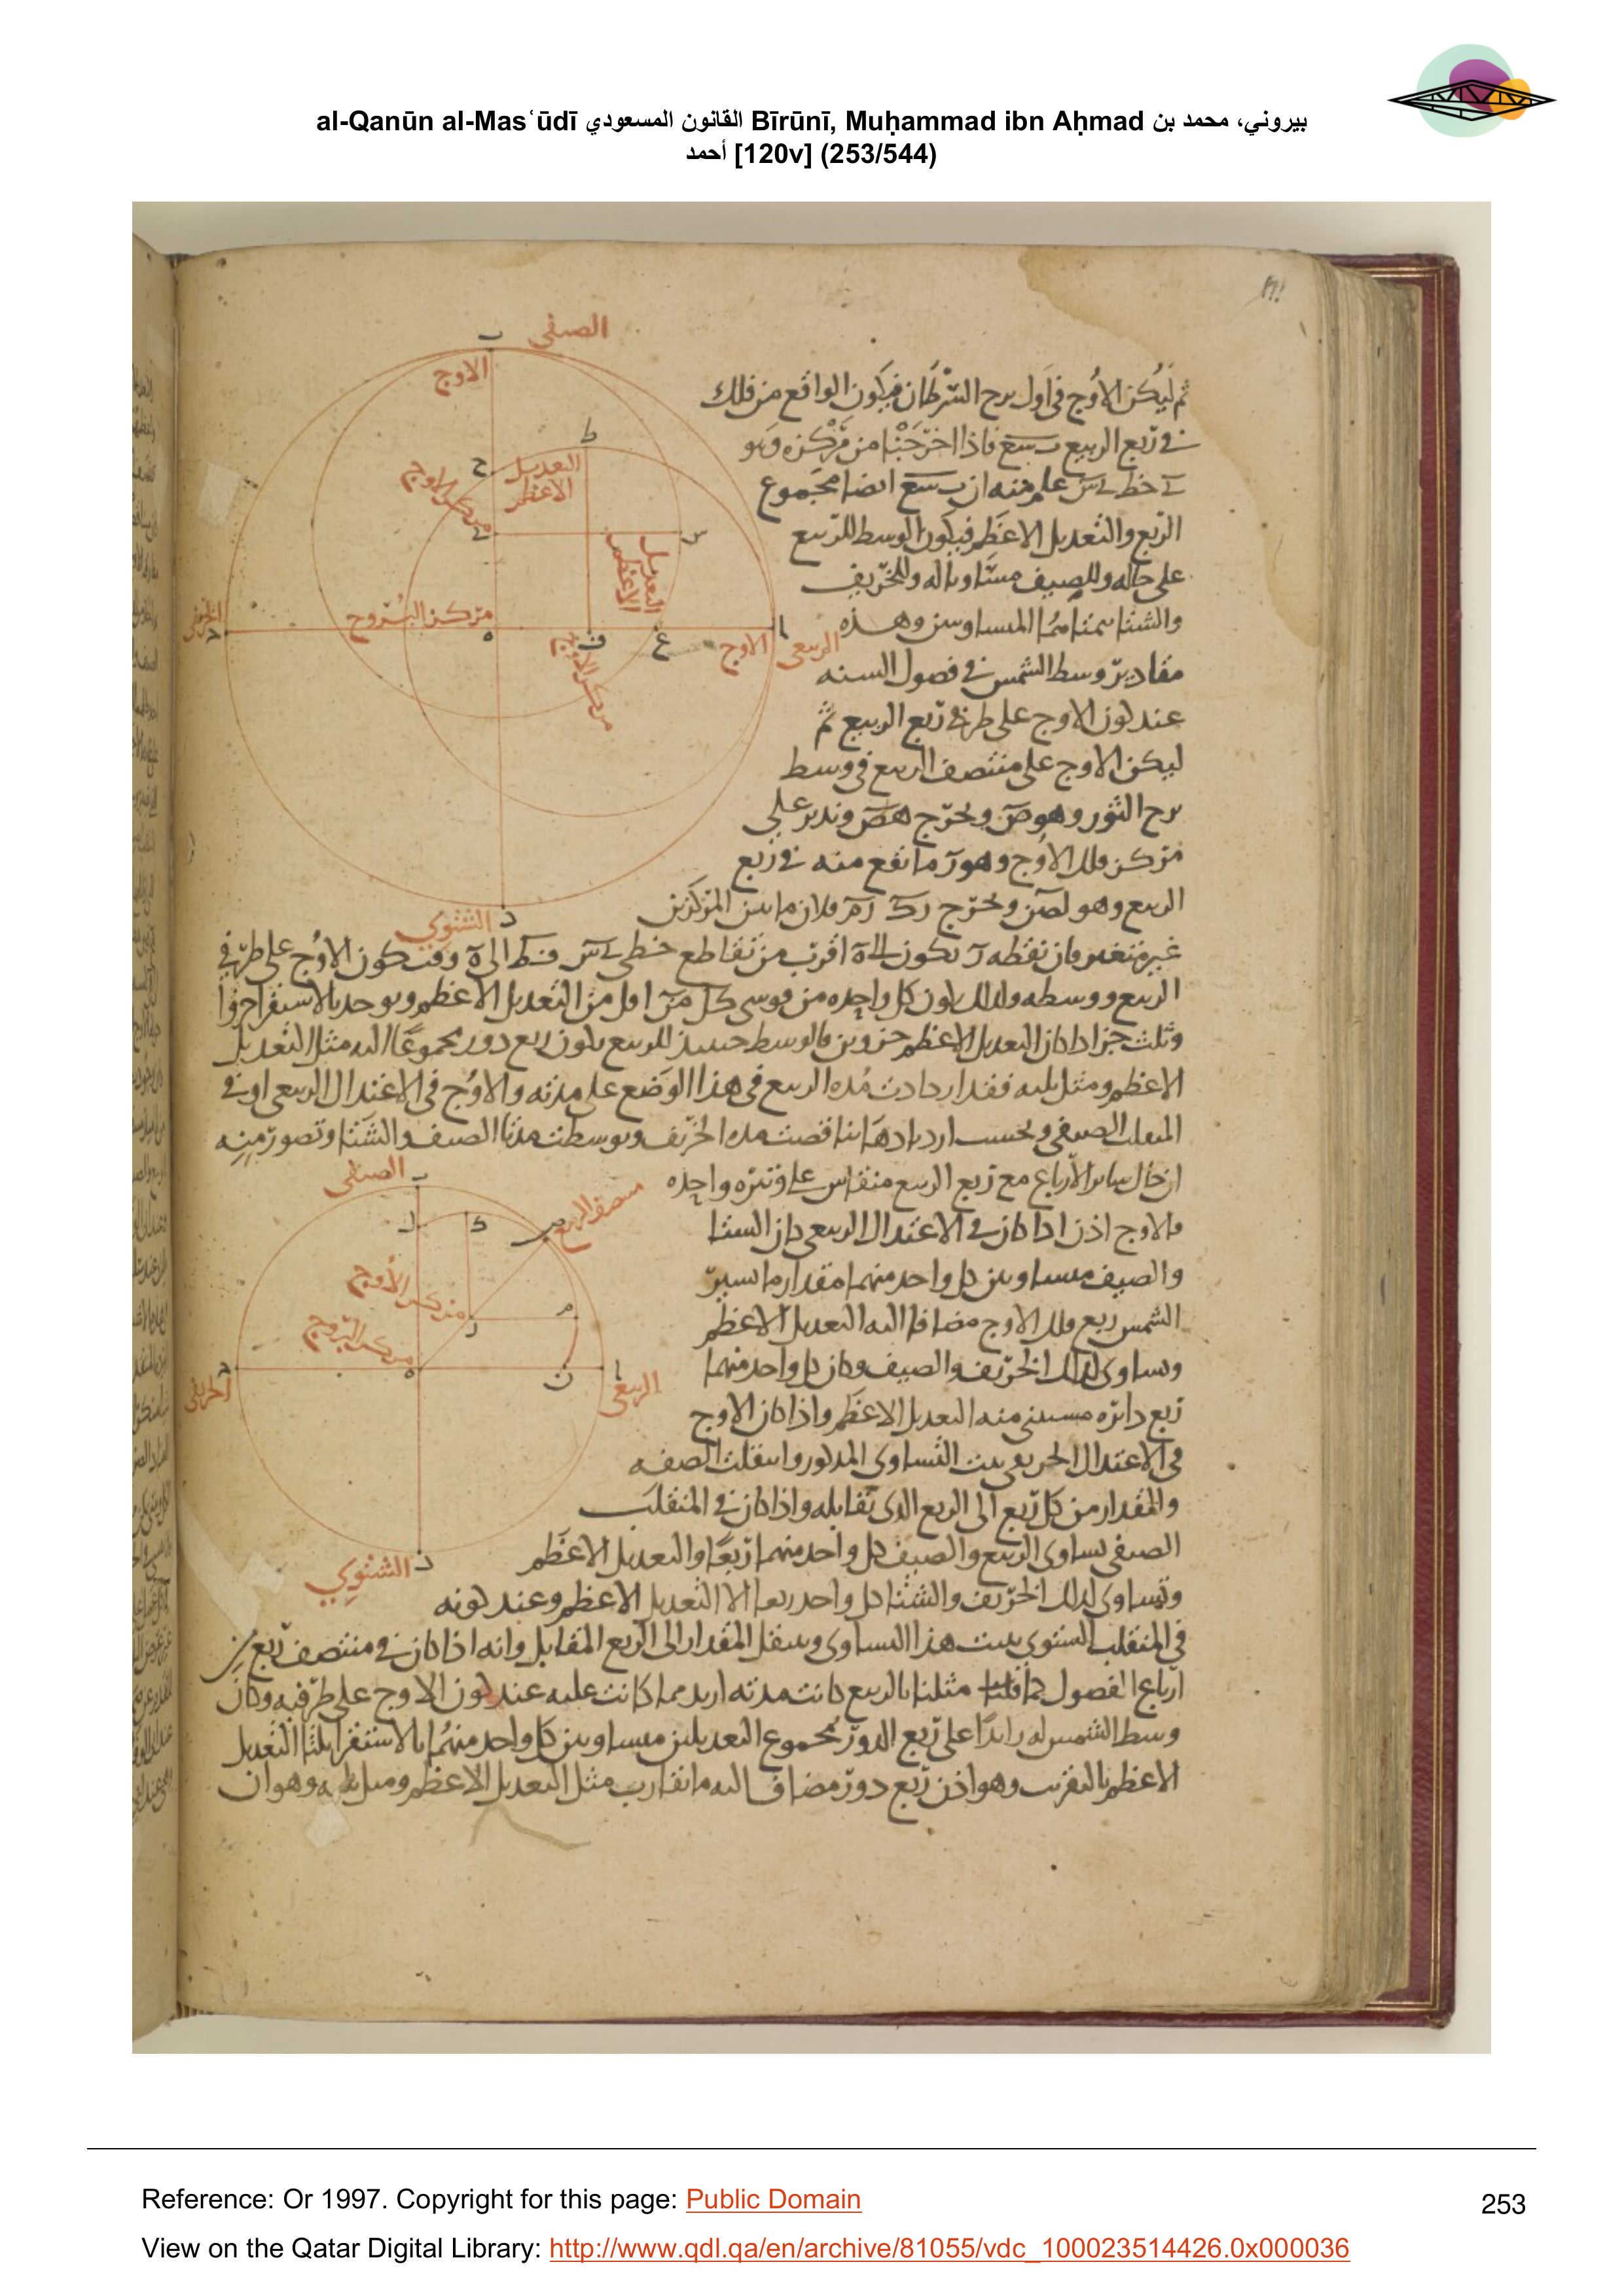 al-Qanūn al-Masʿūdī القانون المسعودي Bīrūnī, Muḥammad ibn Aḥmad بيروني، محمد بن
أحمد [120v] (253/544)
الصيفي
الاوج
ثم ليكن الاوج في اول برج السرطان فيكون الواقع من فلك
في ربع الربيع ب سع فاذا اخرجنا من مركزه وهو
ح خط ح س علم منه ان ب سع ايضا مجموع
الربع والتعديل الاعظم فيكون الوسط للربيع
على حاله وللصيف مساويا له وللخريف
والشتا المساوين وهذه
مقادير وسط الشمس في فصول السنه
عند كون الاوج على طرفي ربع الربيع ثم
ليكن الاوج على منتصف الربيع في وسط
برج الثور وهو ص ونخرج هص وندير على
مركز فلك الاوج وهو ر ما يقع منه في ربع
الربيع وهو لصن ونخرج رك رم فلان ما بين المركزين
غير متغير فان نقطه ر تكون الى ه اقرب من تقاطع خطي ح س ف ط الى ه وقت كون الاوج على طرفي
الربيع ووسطه ولذلك يكون كل واحده من قوسي كل من اقل من التعديل الاعظم ويوجد بالاستقرا جزوا
وثلث جزء اذا كان التعديل الاعظم جزوين فالوسط حينئذ للربيع يكون ربع دور مجموعا اليه مثل التعديل
الاعظم ومثل ثلثه فقد ازدادت مده الربيع في هذا الوضع على مدته والاوج في الاعتدال الربيعي او في
المنقلب الصيفي وبحسب ازديادها تناقصت مده الخريف وتوسطت مدتا الصيف والشتا وتصور منه
ان حال ساير الارباع مع ربع الربيع متقايس على وتيره واحده
فالاوج اذن اذا كان في الاعتدال الربيعي كان الشتا
والصيف متساويين كل واحد منهما مقدار ما تسير
الشمس ربع فلك الاوج مضافا اليه التعديل الاعظم
وتساوى كذلك الخريف والصيف وكان كل واحد منهما
ربع دايره مستثنى منه التعديل الاعظم واذا كان الاوج
في الاعتدال الخريفي ثبت التساوى المذكور وانتقلت الصفه
والمقدار من كل ربع الى الربع الذى يقابله واذا كان في المنقلب
الصيفي تساوى الربيع والصيف كل واحد منهما ربعا والتعديل الاعظم
وتساوى كذلك الخريف والشتا كل واحد ربعا الا التعديل الاعظم وعند كونه
في المنقلب الشتوي يثبت هذا التساوى وينتقل المقدار الى الربع المقابل وانه اذا كان في منتصف ربع من
ارباع الفصول كما مثلنا بالربيع كانت مدته ازيد مما كانت عليه عند كون الاوج على طرفيه وكان
وسط الشمس له زايدا على ربع الدور بمجموع التعديلين متساويين كل واحد منهما بالاستقرا ثلثا التعديل
الاعظم بالتقريب وهو اذن ربع دور مضاف اليه ما تقارب مثل التعديل الاعظم ومثل ثلثه وهو ان
التعديل
الاعظم
مركز الاوج
التعديل
الاعظم
مركز البروج
الخريفي
الاوج
الربيعي
مركز الاوج
الشتوي
الصيفي
منتصف الربيع
مركز الاوج
مركز البروج
الخريفي
الربيعي
الشتوي
Reference: Or 1997. Copyright for this page: Public Domain
253
View on the Qatar Digital Library: http://www.qdl.qa/en/archive/81055/vdc_100023514426.0x000036